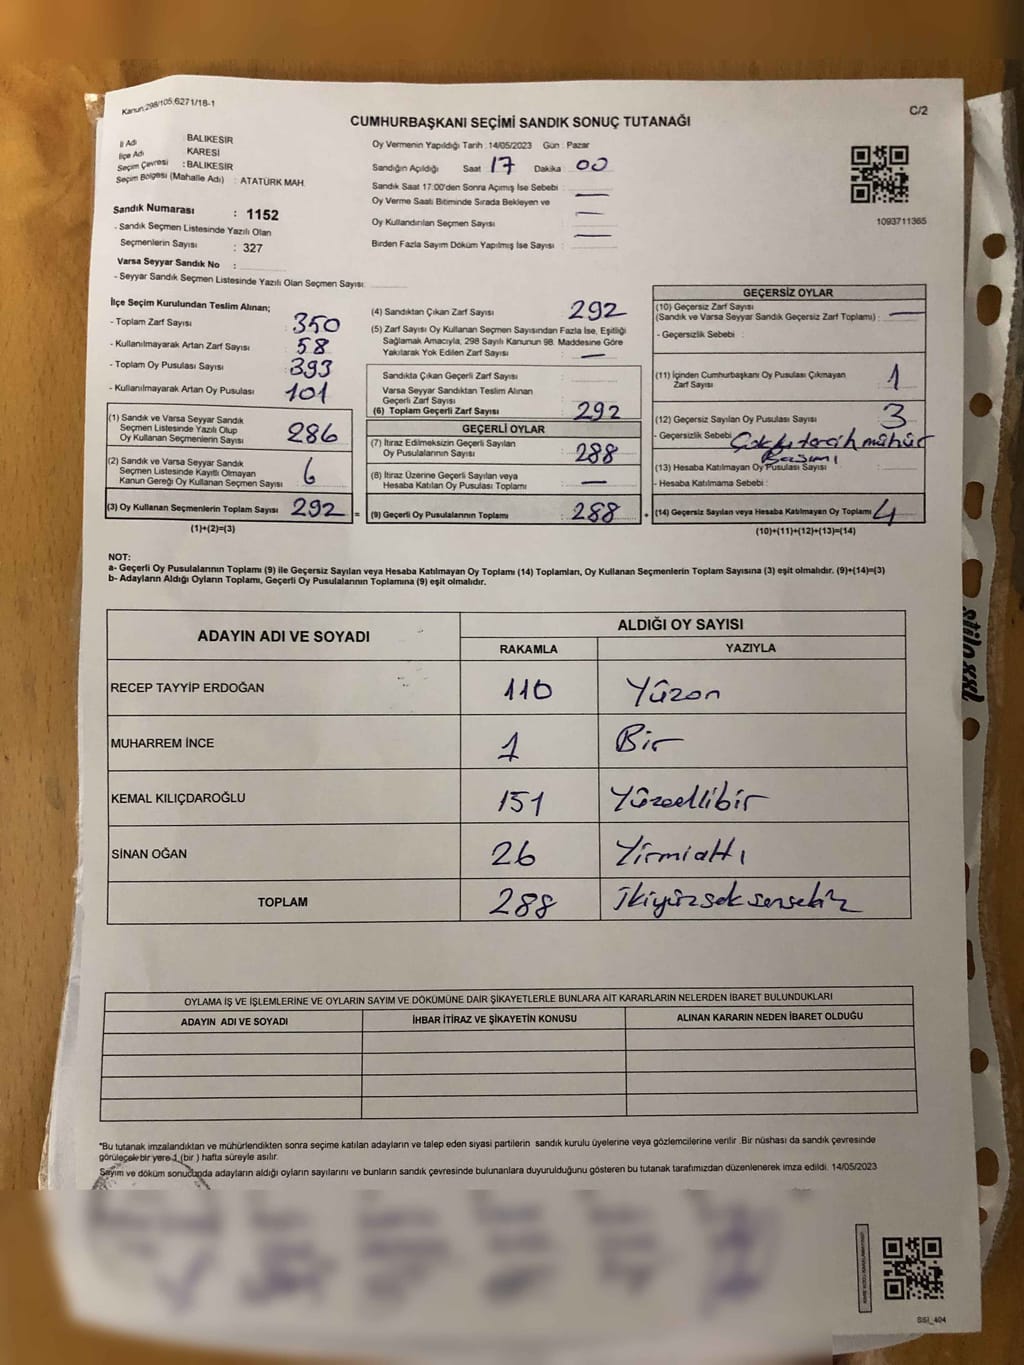 Kanun:298/105,6271/18-1
C/2
CUMHURBAŞKANI SEÇİMİ SANDIK SONUÇ TUTANAĞI
İl Adı BALIKESİR
İlçe Adı KARESİ
Seçim Çevresi : BALIKESİR
Seçim Bölgesi (Mahalle Adı) : ATATÜRK MAH.
Oy Vermenin Yapıldığı Tarih : 14/05/2023 Gün : Pazar
Sandığın Açıldığı Saat 17 Dakika : 00
Sandık Saat 17:00'den Sonra Açımış İse Sebebi : —
Oy Verme Saati Bitiminde Sırada Bekleyen ve —
Oy Kullandırılan Seçmen Sayısı —
Birden Fazla Sayım Döküm Yapılmış İse Sayısı :
1093711365
Sandık Numarası : 1152
- Sandık Seçmen Listesinde Yazılı Olan
Seçmenlerin Sayısı : 327
Varsa Seyyar Sandık No :
- Seyyar Sandık Seçmen Listesinde Yazılı Olan Seçmen Sayısı:
İlçe Seçim Kurulundan Teslim Alınan;
- Toplam Zarf Sayısı : 350
- Kullanılmayarak Artan Zarf Sayısı : 58
- Toplam Oy Pusulası Sayısı : 393
- Kullanılmayarak Artan Oy Pusulası : 101
(1) Sandık ve Varsa Seyyar Sandık
Seçmen Listesinde Yazılı Olup
Oy Kullanan Seçmenlerin Sayısı : 286
(2) Sandık ve Varsa Seyyar Sandık
Seçmen Listesinde Kayıtlı Olmayan
Kanun Gereği Oy Kullanan Seçmen Sayısı : 6
(3) Oy Kullanan Seçmenlerin Toplam Sayısı : 292 =
(1)+(2)=(3)
(4) Sandıktan Çıkan Zarf Sayısı : 292
(5) Zarf Sayısı Oy Kullanan Seçmen Sayısından Fazla İse, Eşitliği
Sağlamak Amacıyla, 298 Sayılı Kanunun 98. Maddesine Göre
Yakılarak Yok Edilen Zarf Sayısı : —
Sandıkta Çıkan Geçerli Zarf Sayısı :
Varsa Seyyar Sandıktan Teslim Alınan
Geçerli Zarf Sayısı :
(6) Toplam Geçerli Zarf Sayısı : 292
GEÇERLİ OYLAR
(7) İtiraz Edilmeksizin Geçerli Sayılan
Oy Pusulalarının Sayısı : 288
(8) İtiraz Üzerine Geçerli Sayılan veya
Hesaba Katılan Oy Pusulası Toplamı : —
(9) Geçerli Oy Pusulalarının Toplamı : 288 +
GEÇERSİZ OYLAR
(10) Geçersiz Zarf Sayısı
(Sandık ve Varsa Seyyar Sandık Geçersiz Zarf Toplamı) : —
- Geçersizlik Sebebi :
(11) İçinden Cumhurbaşkanı Oy Pusulası Çıkmayan
Zarf Sayısı : 1
(12) Geçersiz Sayılan Oy Pusulası Sayısı : 3
- Geçersizlik Sebebi : mühür
Basımı
(13) Hesaba Katılmayan Oy Pusulası Sayısı :
- Hesaba Katılmama Sebebi :
(14) Geçersiz Sayılan veya Hesaba Katılmayan Oy Toplamı : 4
(10)+(11)+(12)+(13)=(14)
NOT:
a- Geçerli Oy Pusulalarının Toplamı (9) ile Geçersiz Sayılan veya Hesaba Katılmayan Oy Toplamı (14) Toplamları, Oy Kullanan Seçmenlerin Toplam Sayısına (3) eşit olmalıdır. (9)+(14)=(3)
b- Adayların Aldığı Oyların Toplamı, Geçerli Oy Pusulalarının Toplamına (9) eşit olmalıdır.
ADAYIN ADI VE SOYADI
ALDIĞI OY SAYISI
RAKAMLA YAZIYLA
RECEP TAYYİP ERDOĞAN 110 Yüzon
MUHARREM İNCE 1 Bir
KEMAL KILIÇDAROĞLU 151 Yüzellibir
SİNAN OĞAN 26 Yirmialtı
TOPLAM 288 İkiyüzseksensekiz
OYLAMA İŞ VE İŞLEMLERİNE VE OYLARIN SAYIM VE DÖKÜMÜNE DAİR ŞİKAYETLERLE BUNLARA AİT KARARLARIN NELERDEN İBARET BULUNDUKLARI
ADAYIN ADI VE SOYADI İHBAR İTİRAZ VE ŞİKAYETİN KONUSU ALINAN KARARIN NEDEN İBARET OLDUĞU
*Bu tutanak imzalandıktan ve mühürlendikten sonra seçime katılan adayların ve talep eden siyasi partilerin sandık kurulu üyelerine veya gözlemcilerine verilir .Bir nüshası da sandık çevresinde
görülecek bir yere 1 (bir ) hafta süreyle asılır.
Sayım ve döküm sonucunda adayların aldığı oyların sayılarını ve bunların sandık çevresinde bulunanlara duyurulduğunu gösteren bu tutanak tarafımızdan düzenlenerek imza edildi. 14/05/2023
stilo xxl